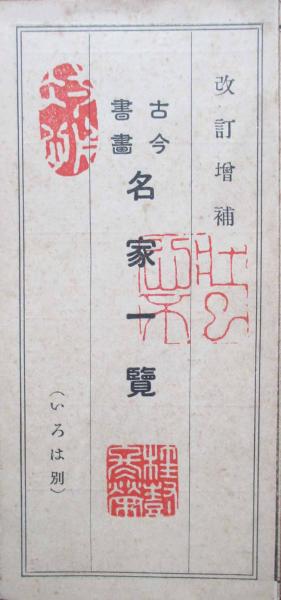 改訂增補
古今
書畫
名家一覽
（いろは別）